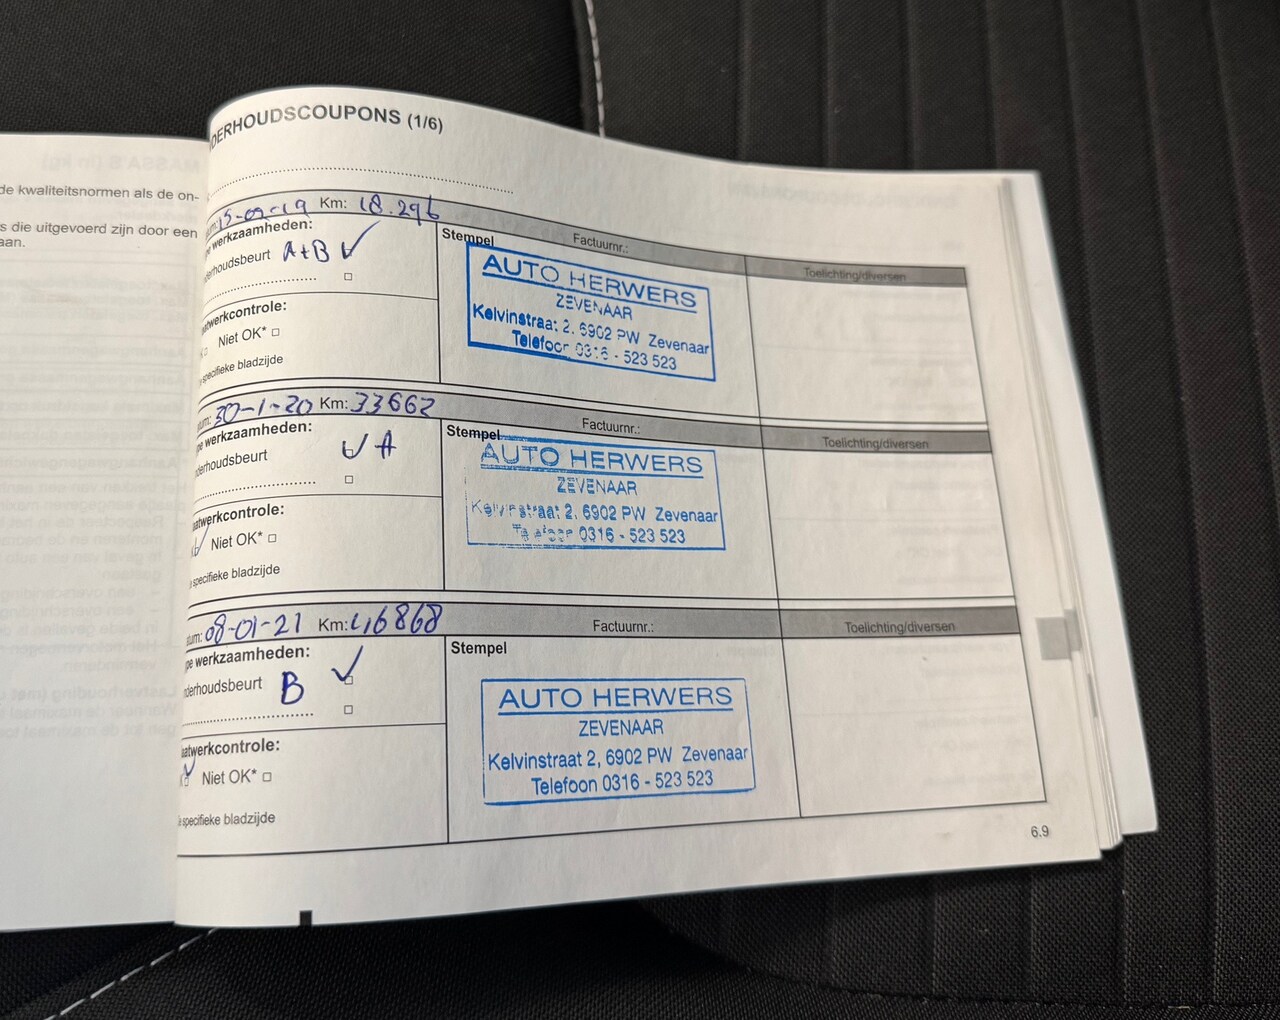 DERHOUDSCOUPONS (1/6)
de kwaliteitsnormen als de on-
s die uitgevoerd zijn door een
aan.
Km: 18.296
Factuurnr.:
Toelichting/diversen
pe werkzaamheden:
derhoudsbeurt A+B
atwerkcontrole:
Niet OK*
specifieke bladzijde
Stempel
AUTO HERWERS
ZEVENAAR
2. 6902 PW Zevenaar
- 523 523
tum: 30-1-20 Km: 33662
Factuurnr.:
Toelichting/diversen
pe werkzaamheden:
derhoudsbeurt A
aatwerkcontrole:
Niet OK*
specifieke bladzijde
Stempel
AUTO HERWERS
ZEVENAAR
2, 6902 PW Zevenaar
0316 - 523 523
tum: 08-01-21 Km: 46868
Factuurnr.:
Toelichting/diversen
pe werkzaamheden:
nderhoudsbeurt B
aatwerkcontrole:
Niet OK*
specifieke bladzijde
Stempel
AUTO HERWERS
ZEVENAAR
Kelvinstraat 2, 6902 PW Zevenaar
Telefoon 0316 - 523 523
6.9